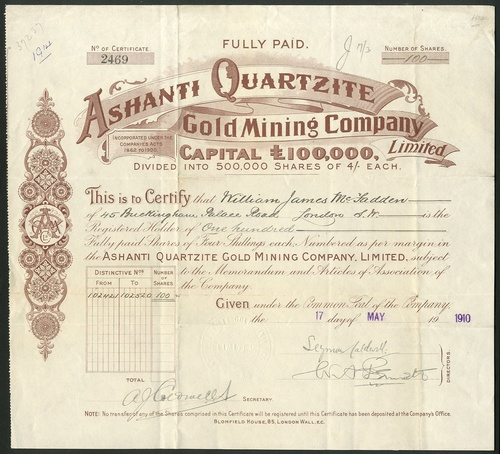 FULLY PAID.
Nº OF CERTIFICATE.
2469
NUMBER OF SHARES.
100
ASHANTI QUARTZITE
Gold Mining Company
Limited.
INCORPORATED UNDER THE
COMPANIES ACTS
1862 TO 1900.
CAPITAL £100,000,
DIVIDED INTO 500,000 SHARES OF 4/- EACH.
This is to Certify that William James McFadden
of 45 Buckingham Palace Road London S.W. is the
Registered Holder of One hundred
Fully paid Shares of Four Shillings each, Numbered as per margin in
the ASHANTI QUARTZITE GOLD MINING COMPANY, LIMITED, subject
to the Memorandum and Articles of Association of
the Company.
DISTINCTIVE Nos
NUMBER OF SHARES
FROM TO
102421 102520 100
Given under the Common Seal of the Company,
the 17 day of MAY 19 1910
TOTAL
SECRETARY.
DIRECTORS.
NOTE: No transfer of any of the Shares comprised in this Certificate will be registered until this Certificate has been deposited at the Company's Office.
BLOMFIELD HOUSE, 85, LONDON WALL, E.C.